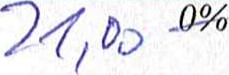 21,00 0%